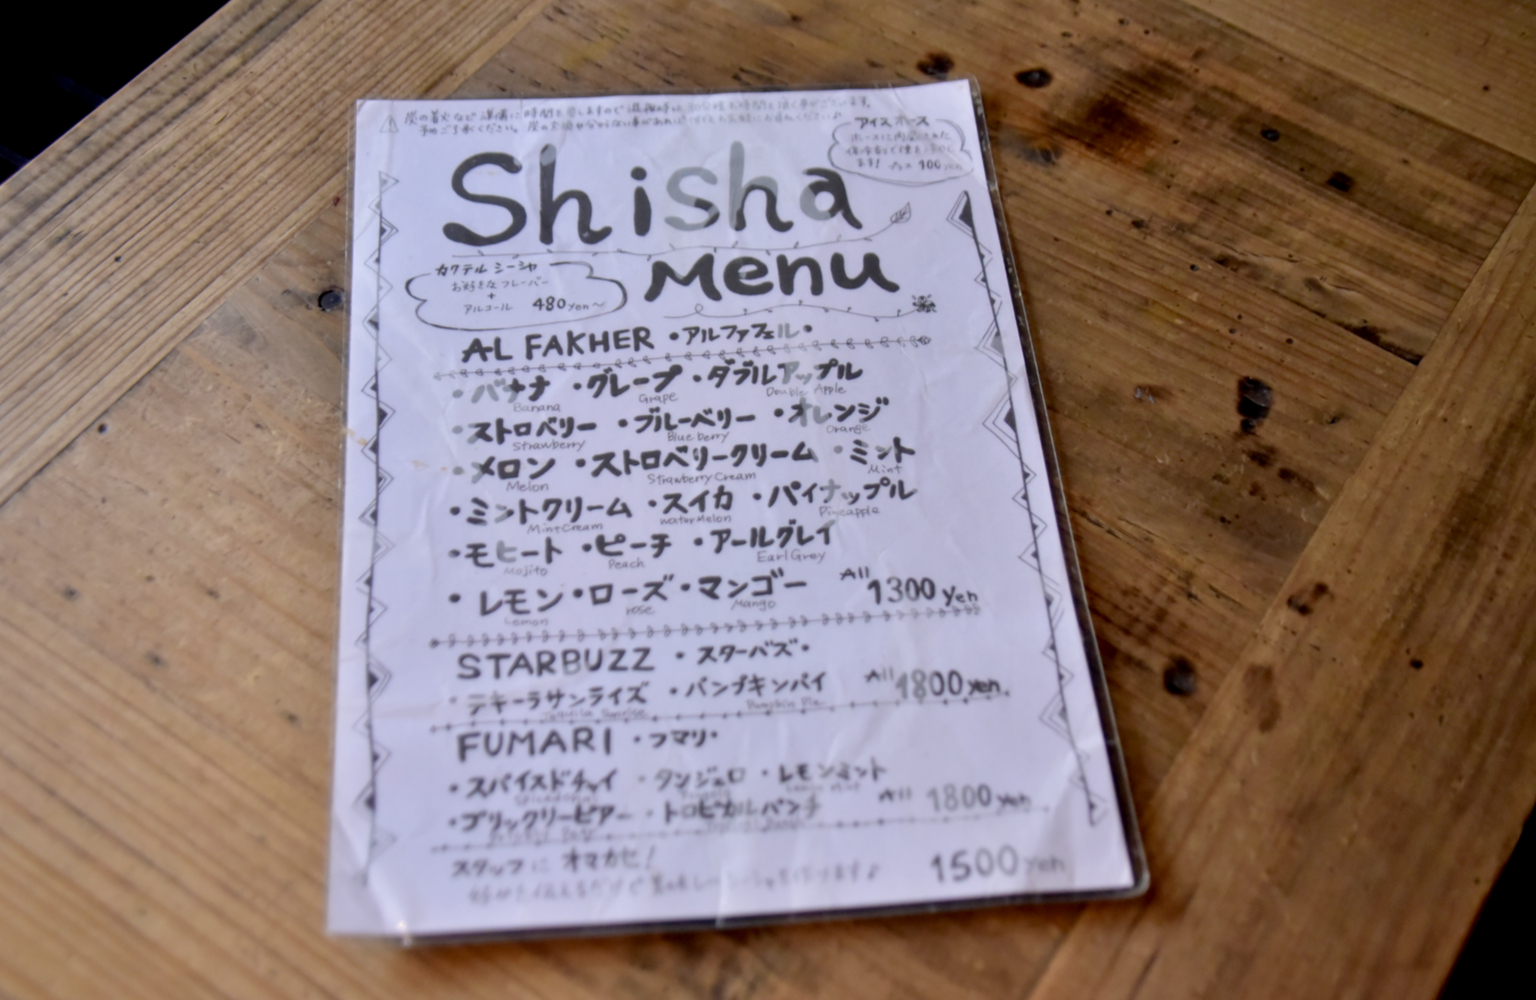 炭の着火など準備に時間を要しますので
アイスホース
ます! プラス 100 yen
Shisha
Menu
カクテル シーシャ
お好きなフレーバー
+
アルコール 480 yen~
AL FAKHER ・アルファフェル・
・バナナ ・グレープ ・ダブルアップル
Banana Grape Double Apple
・ストロベリー ・ブルーベリー ・オレンジ
Strawberry Blueberry Orange
・メロン ・ストロベリークリーム ・ミント
Melon Strawberry Cream Mint
・ミントクリーム ・スイカ ・パイナップル
Mint Cream water Melon Pineapple
・モヒート ・ピーチ ・アールグレイ
Mojito Peach Earl Grey
・レモン ・ローズ ・マンゴー All 1300 yen
Lemon rose Mango
STARBUZZ ・スターバズ・
・テキーラサンライズ ・パンプキンパイ All 1800 yen.
Tequila Sunrise Pumpkin Pie
FUMARI ・フマリ・
・スパイスドチャイ ・タンジェロ ・レモンミント
・プリックリーピアー ・トロピカルパンチ All 1800 yen
スタッフに オマカセ! 1500 yen